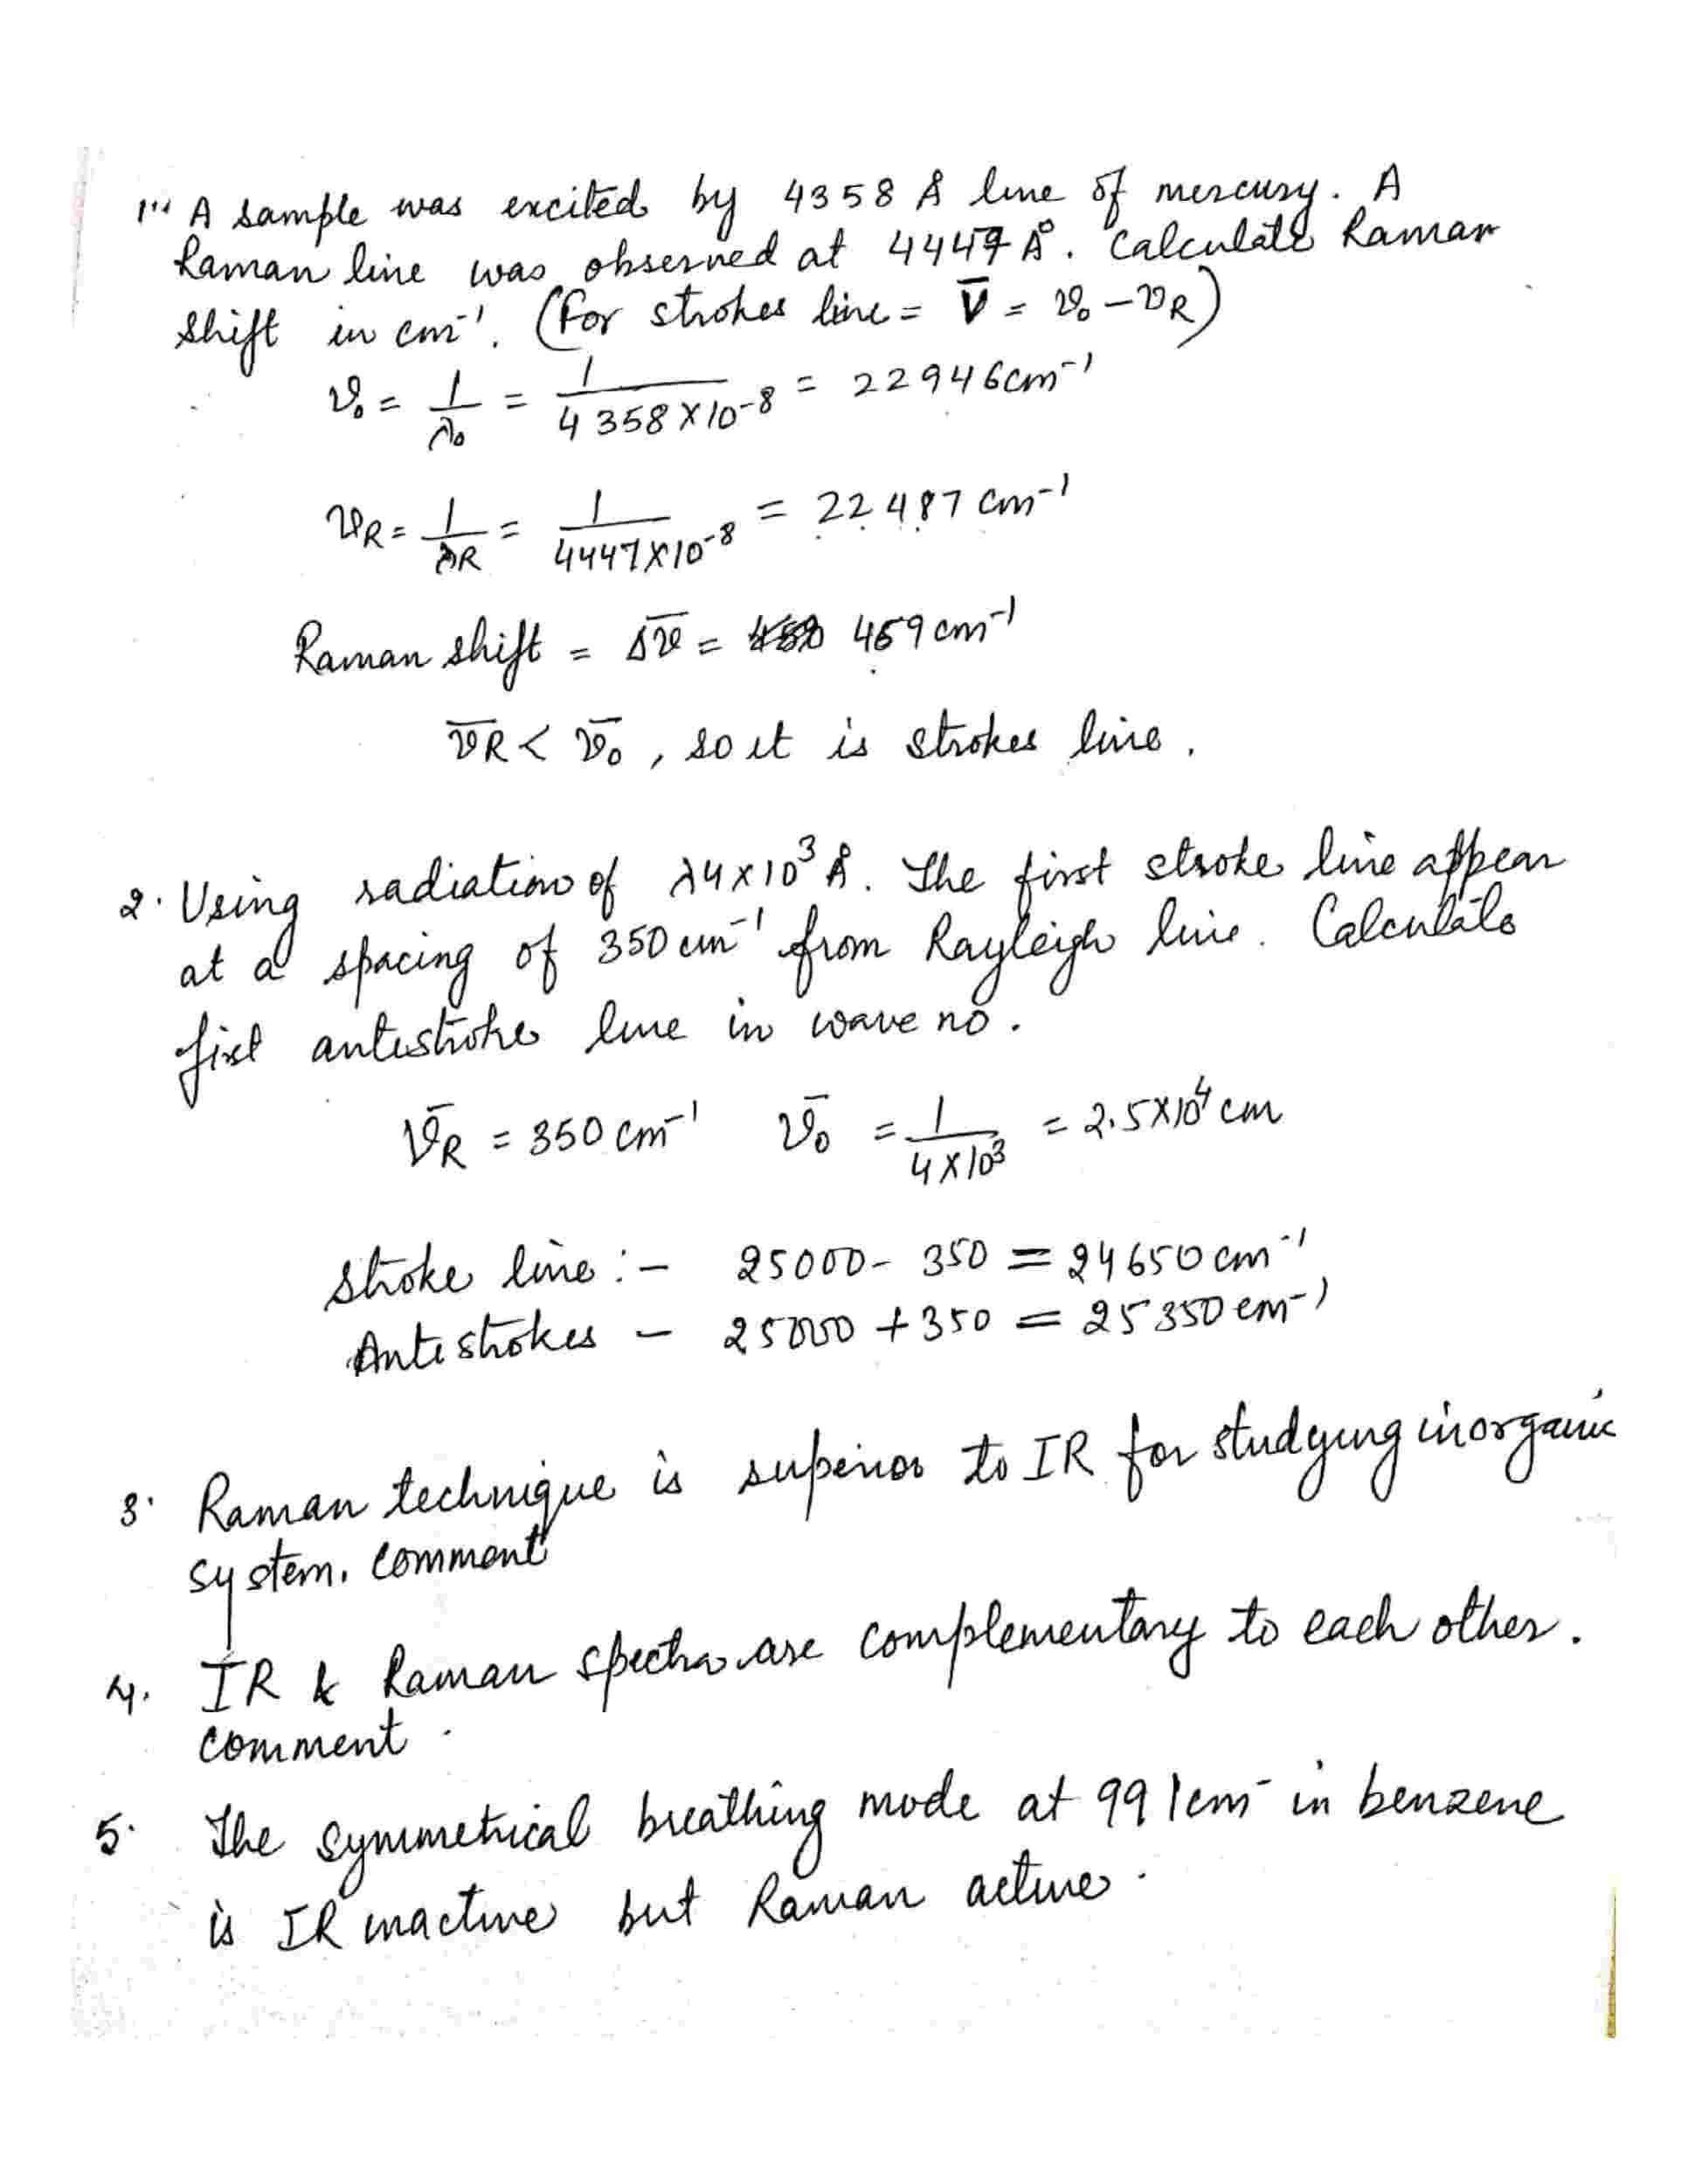 1. A sample was excited by 4358 Å line of mercury. A
Raman line was observed at 4447 Å. Calculate Raman
shift in cm⁻¹. (For strokes line = V̄ = ν₀ – νR)
ν₀ = 1/λ₀ = 1/4358×10⁻⁸ = 22946cm⁻¹
νR = 1/λR = 1/4447×10⁻⁸ = 22487 cm⁻¹
Raman shift = Δν̄ = 459 cm⁻¹
ν̄R < ν̄₀, so it is strokes line.
2. Using radiation of λ4×10³ Å. The first stroke line appear
at a spacing of 350 cm⁻¹ from Rayleigh line. Calculate
fist antistroke line in wave no.
ν̄R = 350 cm⁻¹ ν̄₀ = 1/4×10³ = 2.5×10⁴ cm
stroke line :– 25000 – 350 = 24650 cm⁻¹
Antistrokes – 25000 + 350 = 25350 cm⁻¹
3. Raman technique is superior to IR for studying inorganic
system. Comment
4. IR & Raman spectra are complementary to each other.
comment.
5. The symmetrical breathing mode at 991cm⁻ in benzene
is IR inactive but Raman active.